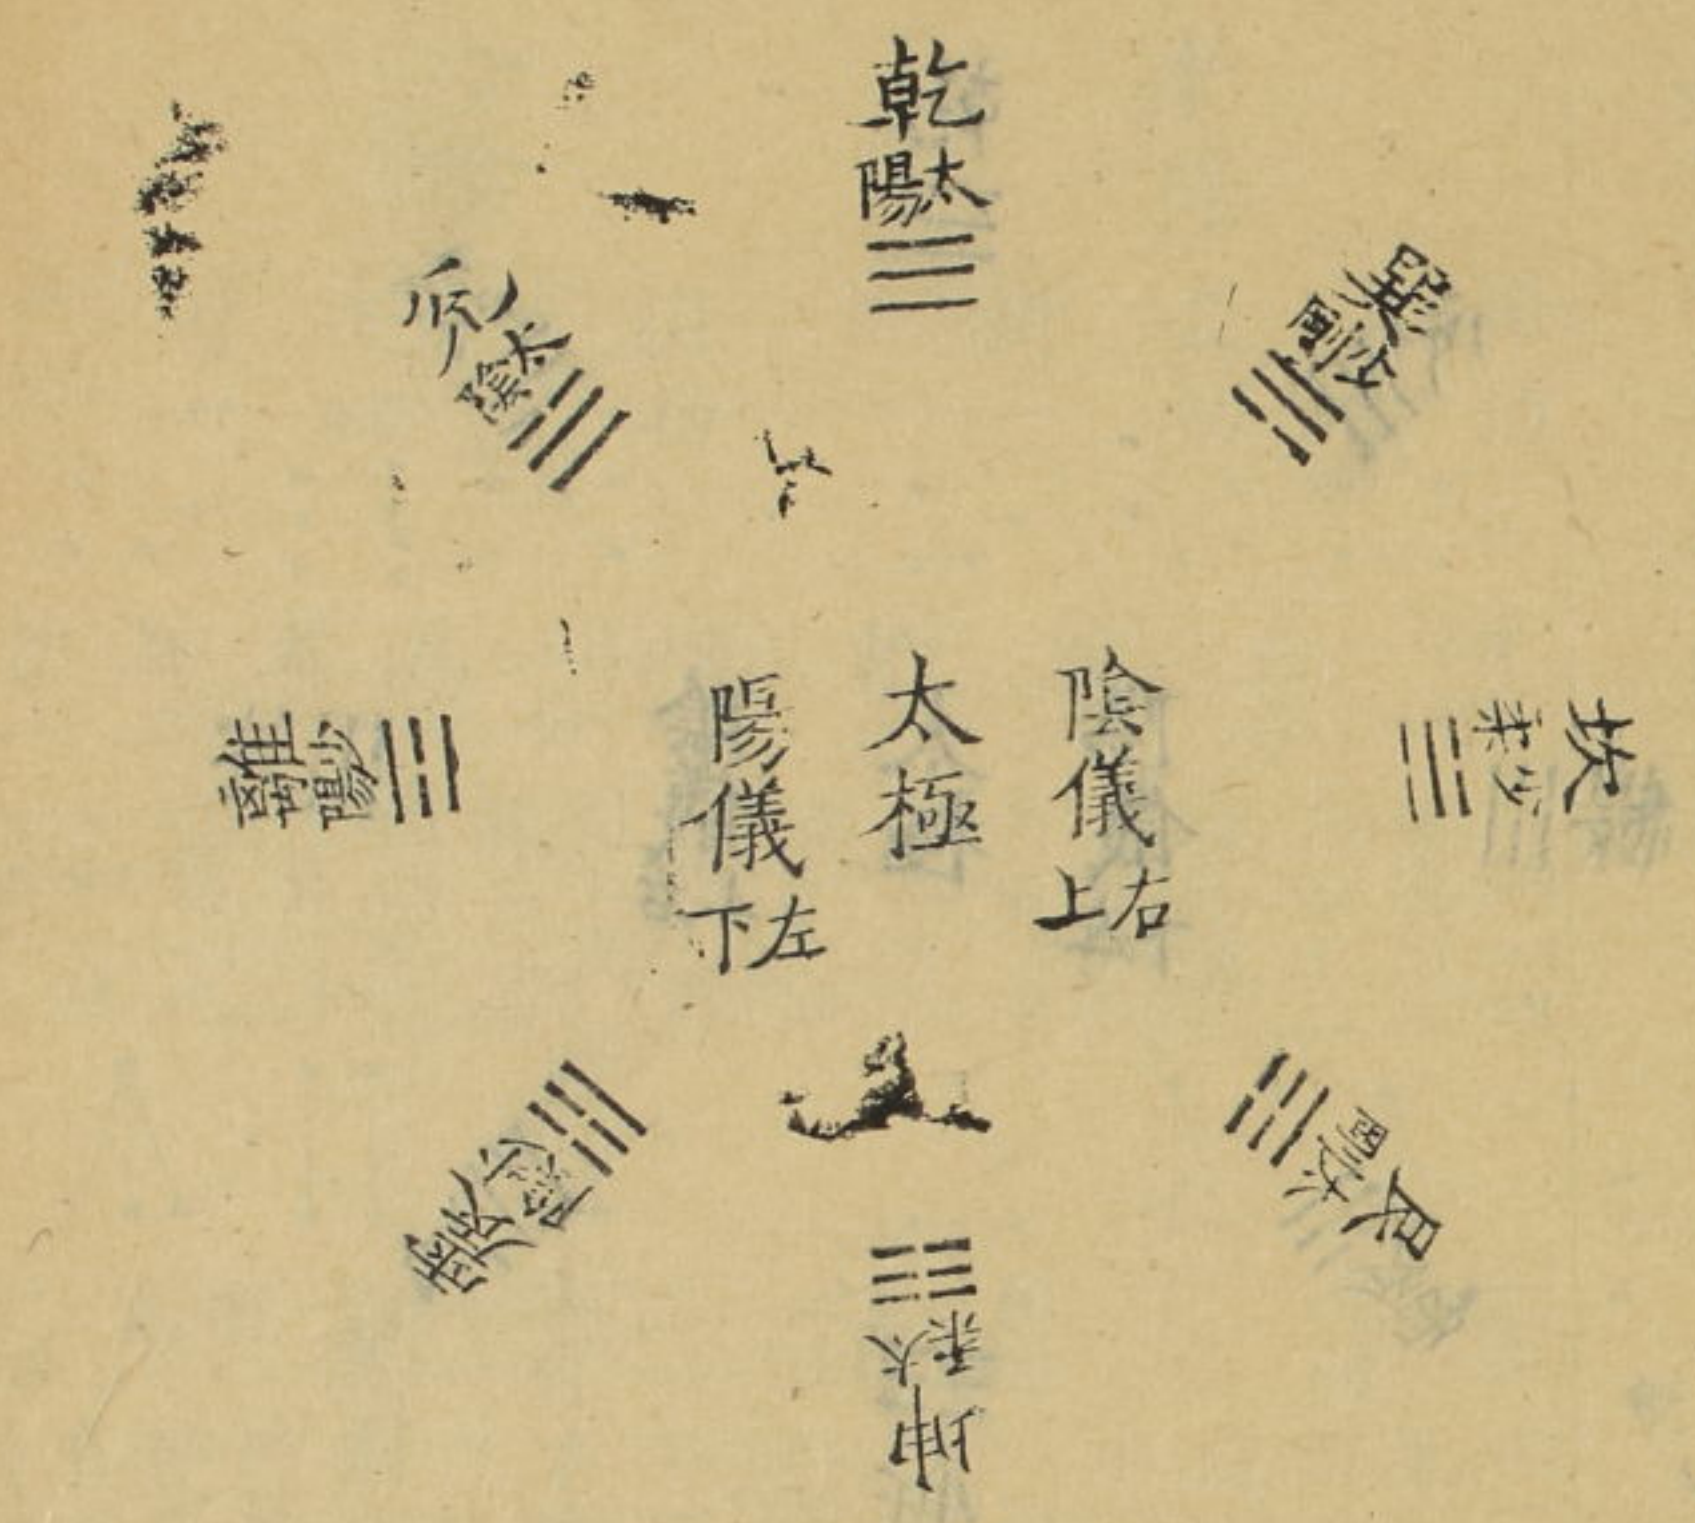 乾
太陽
巽
少剛
坎
少柔
艮
太剛
坤
太柔
震
少陰
離
少陽
兌
太陰
陰儀
右上
太極
陽儀
左下